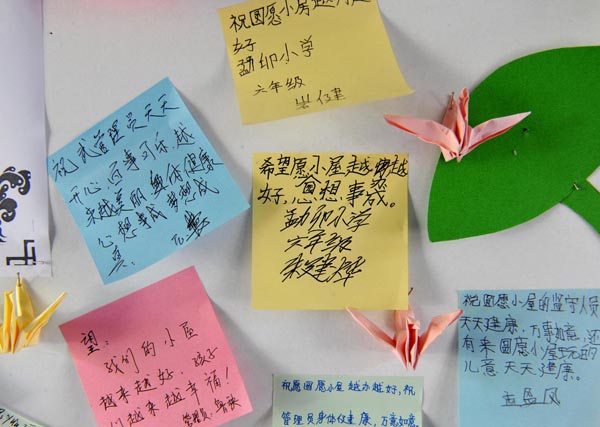 祝圆愿小房越办越
好
勐卯小学
六年级
祝我管理员天天
开心,百事可乐,越
来越美丽,身体健康
心想事成,梦想成
真。
希望愿小屋越办越
好,意想事成。
勐卯小学
六年级
望:
我们的小屋
越来越好,孩子
们越来越幸福!
管理员:
祝愿圆愿小屋越办越好,祝
管理员身体健康,万意如意
祝圆愿小屋的坚守人员
天天健康,万事如意,还
有来圆愿小屋玩的
儿意天天健康。
孟盈凤